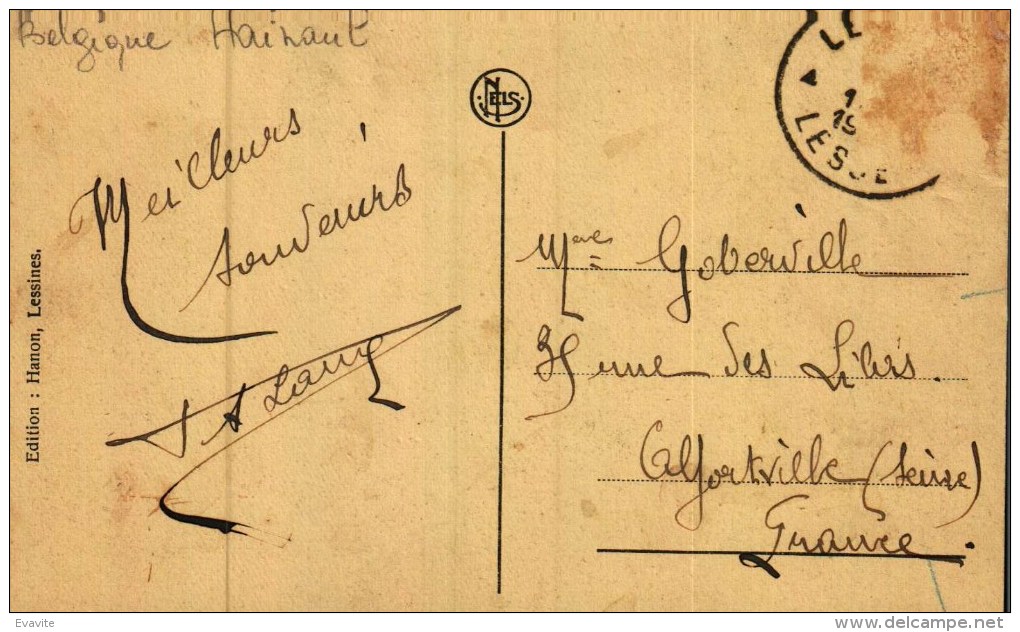 Belgique Hainaut
NELS
LE
1
19
LESS
Meilleurs
souvenirs
Edition : Hanon, Lessines.
Mme Goberville
rue des Lilas.
Alfortville (Seine)
France.
Evavite
delcampe.net